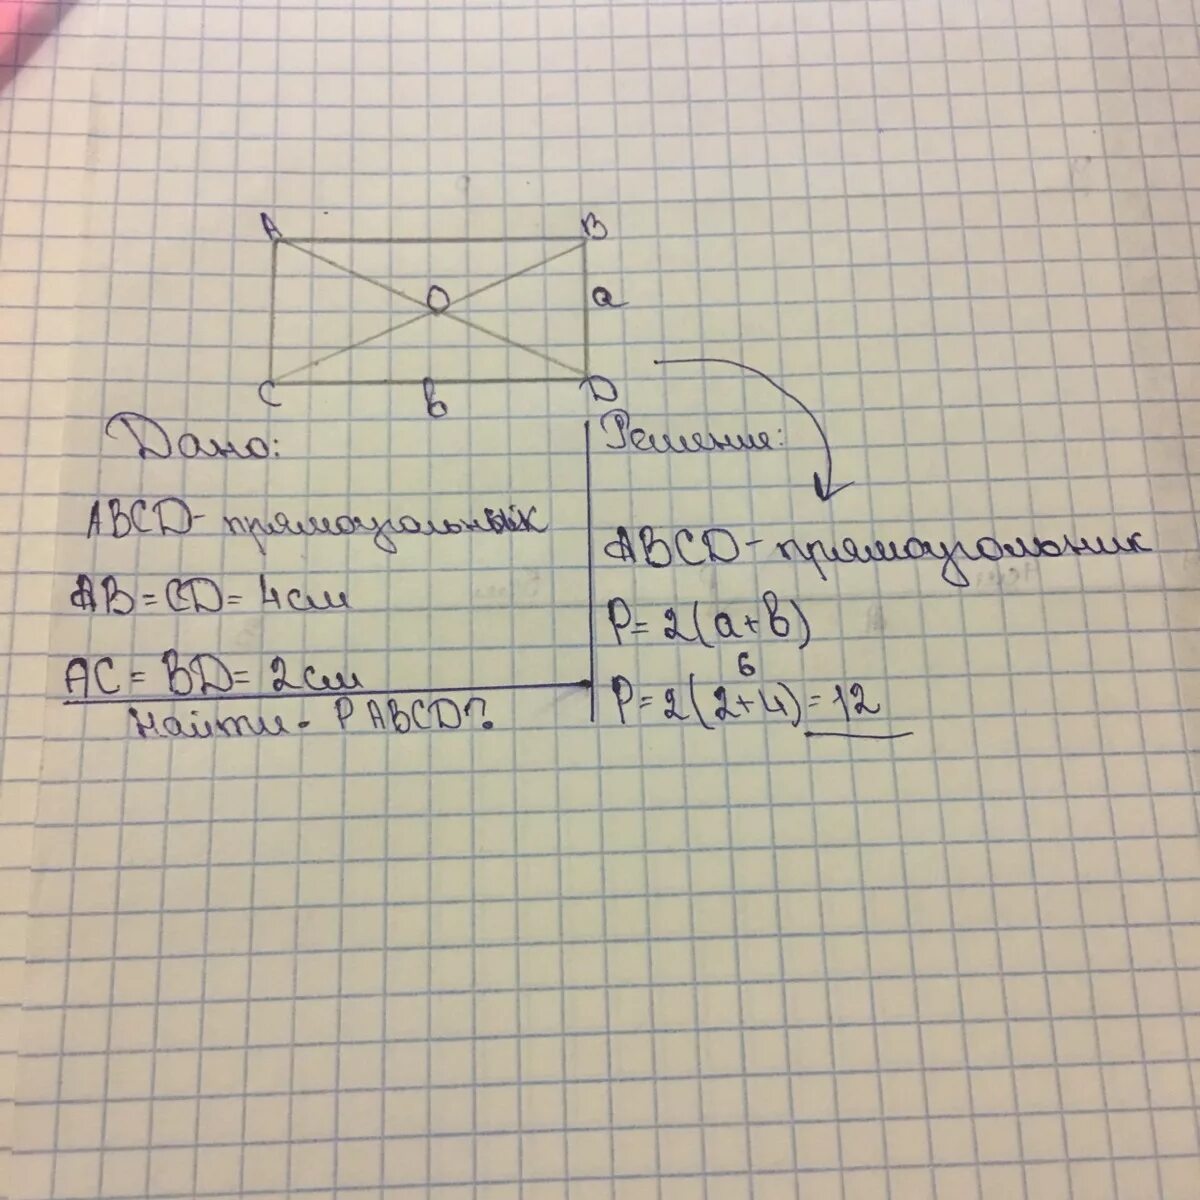 A B
O a
C в D
Дано:
ABCD - прямоугольнык
AB = CD = 4см
AC = BD = 2см
Найти - P ABCD?
Решение:
ABCD - прямоугольник
P = 2(a+в)
6
P = 2(2+4) = 12